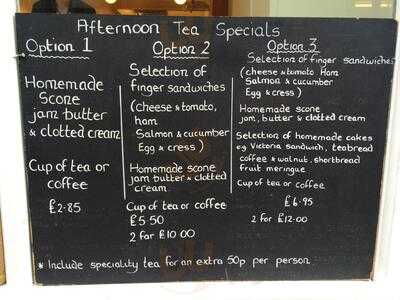 Afternoon Tea Specials
Option 1
Homemade
Scone
jam butter
& clotted cream
Cup of tea or
coffee
£2.85
Option 2
Selection of
finger sandwiches
(cheese & tomato,
ham
Salmon & cucumber
Egg & cress)
Homemade scone
jam butter & clotted
cream
Cup of tea or coffee
£5.50
2 for £10.00
Option 3
Selection of finger sandwiches
(cheese & tomato Ham
Salmon & cucumber
Egg & cress)
Homemade scone
jam, butter & clotted cream
Selection of homemade cakes
eg Victoria sandwich, teabread
coffee & walnut, shortbread
fruit meringue
Cup of tea or coffee
£6.95
2 for £12.00
* Include speciality tea for an extra 50p per person